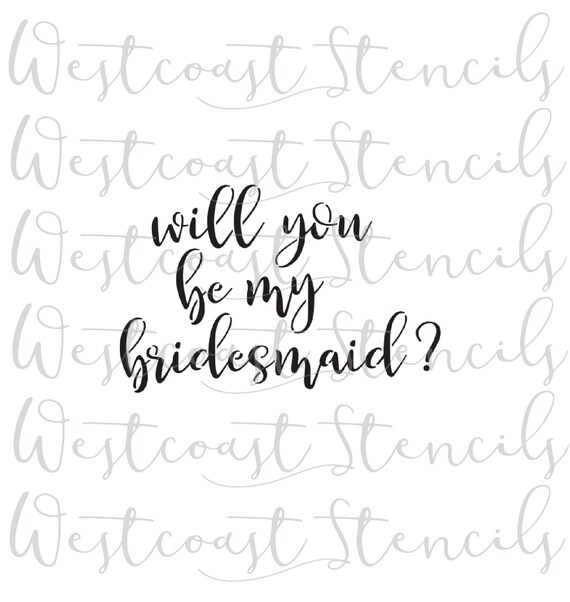 Westcoast Stencils
Westcoast Stencils
will you
Westcoast Stencils
be my
Westcoast Stencils
bridesmaid?
Westcoast Stencils
Westcoast Stencils